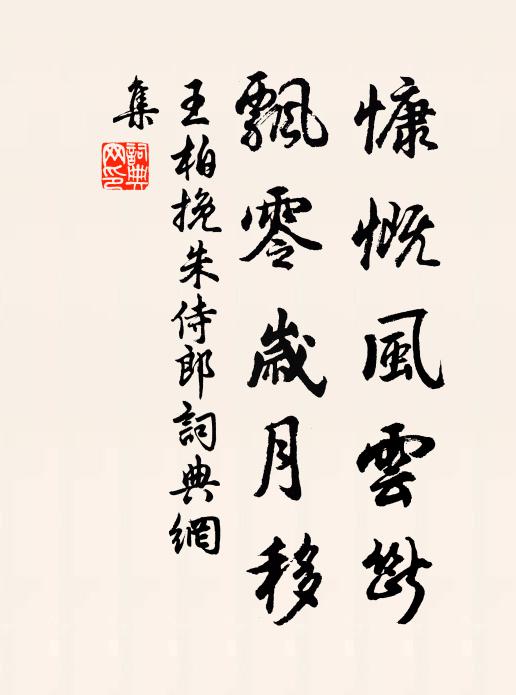 慷慨風雲斷
飄零歲月移
王柏挽朱侍郎詞典網
集
詞典
网印